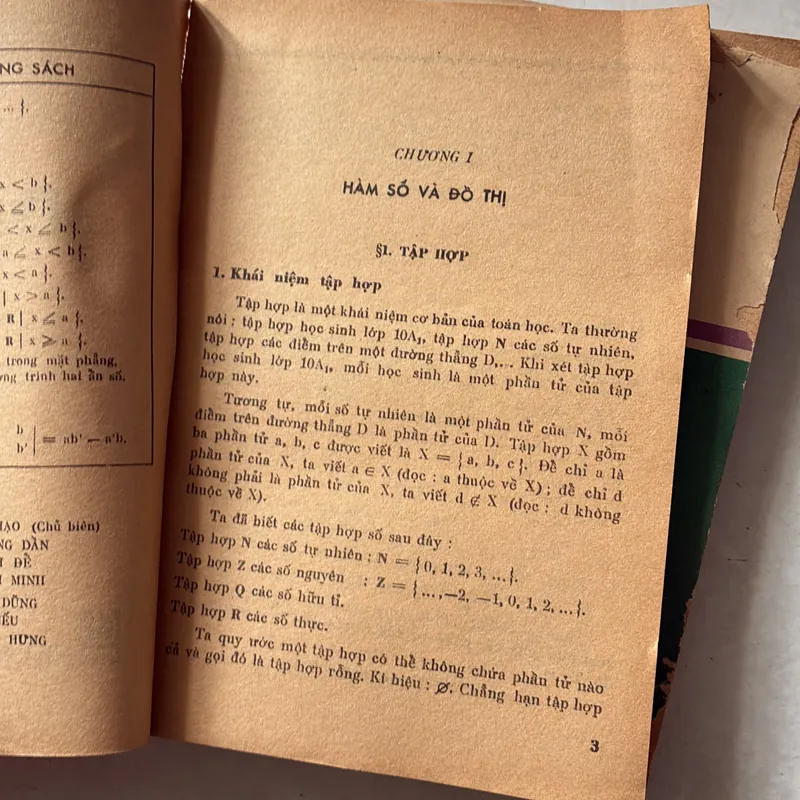 NG SÁCH
... }.
x < b }.
x ≦ b }.
< x < b }.
a ≦ x < b }.
x < a }.
| x > a }.
R | x ≦ a }.
R | x ≧ a }.
trong mặt phẳng,
ng trình hai ẩn số.
b
b' | = ab' — a'b.
ẠO (Chủ biên)
NG DẦN
ĐỄ
MINH
DŨNG
IẾU
HƯNG
CHƯƠNG I
HÀM SỐ VÀ ĐỒ THỊ
§1. TẬP HỢP
1. Khái niệm tập hợp
Tập hợp là một khái niệm cơ bản của toán học. Ta thường
nói : tập hợp học sinh lớp 10A₁, tập hợp N các số tự nhiên,
tập hợp các điểm trên một đường thẳng D,... Khi xét tập hợp
học sinh lớp 10A₁, mỗi học sinh là một phần tử của tập
hợp này.
Tương tự, mỗi số tự nhiên là một phần tử của N, mỗi
điểm trên đường thẳng D là phần tử của D. Tập hợp X gồm
ba phần tử a, b, c được viết là X = {a, b, c}. Để chỉ a là
phần tử của X, ta viết a ∈ X (đọc : a thuộc về X) ; để chỉ d
không phải là phần tử của X, ta viết d ∉ X (đọc : d không
thuộc về X).
Ta đã biết các tập hợp số sau đây :
Tập hợp N các số tự nhiên : N = {0, 1, 2, 3, ...}.
Tập hợp Z các số nguyên : Z = {...,—2, —1, 0, 1, 2, ...}.
Tập hợp Q các số hữu tỉ.
Tập hợp R các số thực.
Ta quy ước một tập hợp có thể không chứa phần tử nào
cả và gọi đó là tập hợp rỗng. Kí hiệu : ∅. Chẳng hạn tập hợp
3